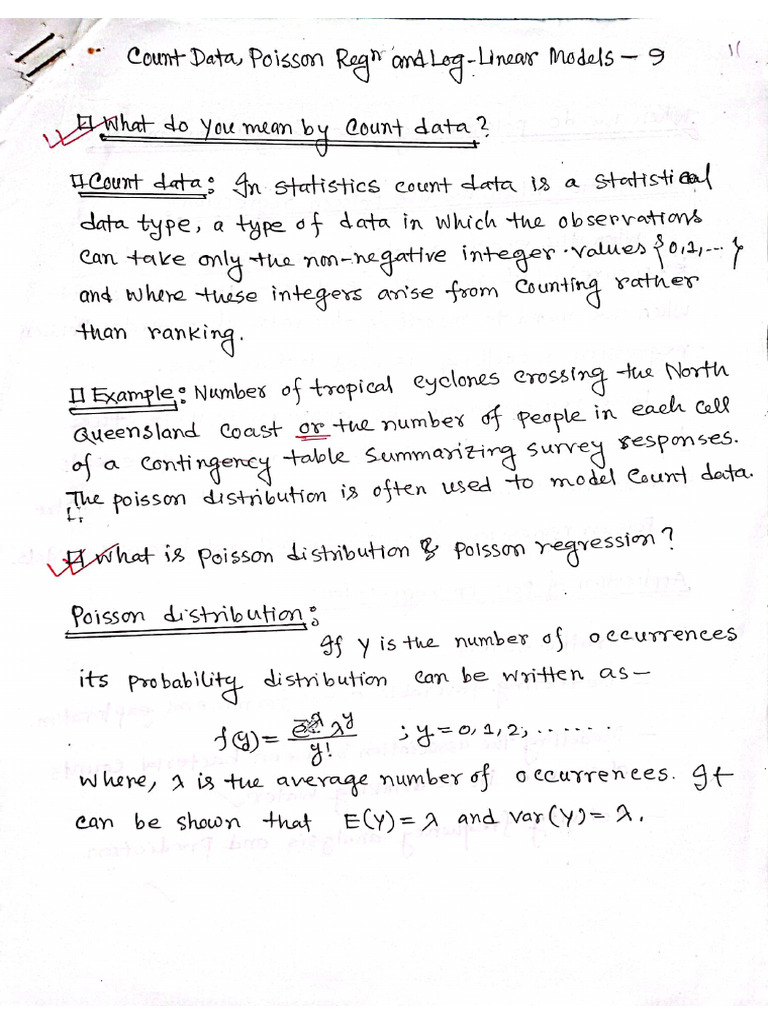 Count Data, Poisson Regn and Log-Linear Models - 9
What do you mean by Count data?
Count data: In statistics count data is a statistical
data type, a type of data in which the observations
can take only the non-negative integer values {0,1,...}
and where these integers arise from counting rather
than ranking.
Example: Number of tropical cyclones crossing the North
Queensland Coast or the number of people in each cell
of a contingency table summarizing survey responses.
The poisson distribution is often used to model Count data.
What is poisson distribution & poisson regression?
Poisson distribution:
If Y is the number of occurrences
its probability distribution can be written as—
f(y) = e^-λ λ^y / y! ; y = 0, 1, 2, ......
where, λ is the average number of occurrences. It
can be shown that E(Y) = λ and var(Y) = λ.